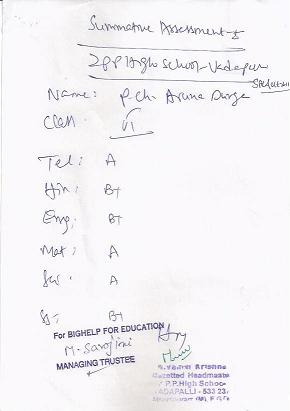 Summative Assessment-I
ZPP High School - Vadapalli
Name: P.Ch. Aruna Durga
Class: VI
Tel: A
Hin: B+
Eng: B+
Mat: A
Sci: A
S: B+
For BIGHELP FOR EDUCATION
M. Sarojini
MANAGING TRUSTEE
Krishna
Gazetted Headmaste
P.P.High Schoo
ADAPALLI - 533 23